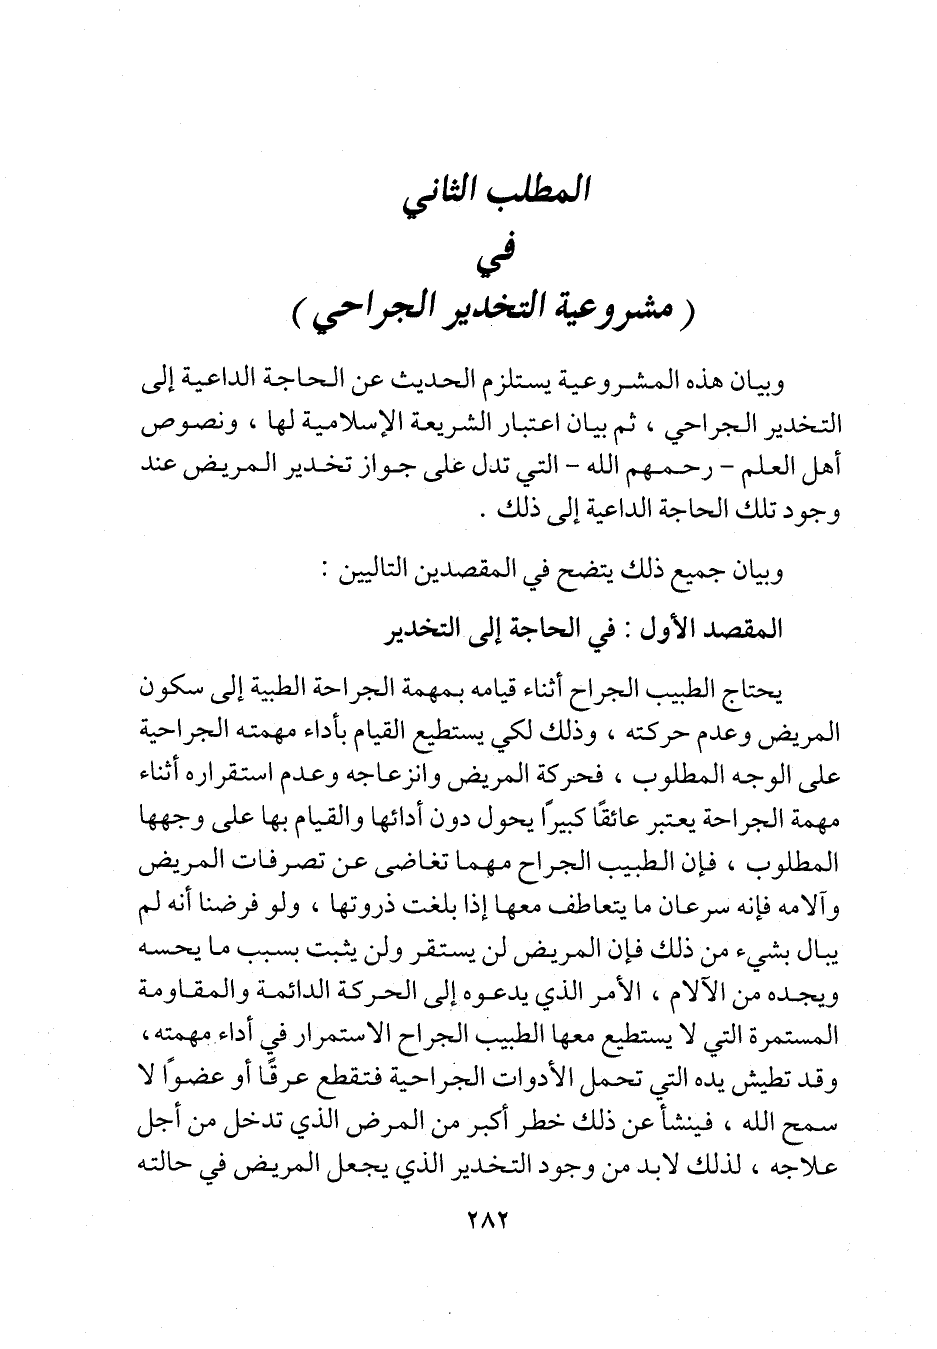 المطلب الثاني
في
( مشروعية التخدير الجراحي )
وبيان هذه المشروعية يستلزم الحديث عن الحاجة الداعية إلى
التخدير الجراحي ، ثم بيان اعتبار الشريعة الإسلامية لها ، ونصوص
أهل العلم - رحمهم الله - التي تدل على جواز تخدير المريض عند
وجود تلك الحاجة الداعية إلى ذلك .
وبيان جميع ذلك يتضح في المقصدين التاليين :
المقصد الأول : في الحاجة إلى التخدير
يحتاج الطبيب الجراح أثناء قيامه بمهمة الجراحة الطبية إلى سكون
المريض وعدم حركته ، وذلك لكي يستطيع القيام بأداء مهمته الجراحية
على الوجه المطلوب ، فحركة المريض وانزعاجه وعدم استقراره أثناء
مهمة الجراحة يعتبر عائقًا كبيرًا يحول دون أدائها والقيام بها على وجهها
المطلوب ، فإن الطبيب الجراح مهما تغاضى عن تصرفات المريض
وآلامه فإنه سرعان ما يتعاطف معها إذا بلغت ذروتها ، ولو فرضنا أنه لم
يبال بشيء من ذلك فإن المريض لن يستقر ولن يثبت بسبب ما يحسه
ويجده من الآلام ، الأمر الذي يدعوه إلى الحركة الدائمة والمقاومة
المستمرة التي لا يستطيع معها الطبيب الجراح الاستمرار في أداء مهمته ،
وقد تطيش يده التي تحمل الأدوات الجراحية فتقطع عرقًا أو عضوًا لا
سمح الله ، فينشأ عن ذلك خطر أكبر من المرض الذي تدخل من أجل
علاجه ، لذلك لابد من وجود التخدير الذي يجعل المريض في حالته
٢٨٢